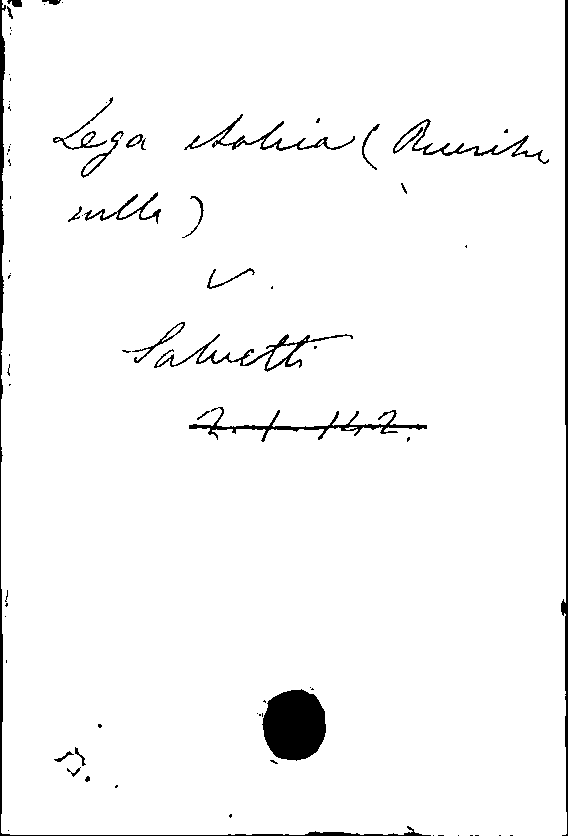 Lega italica (Riunite
nella)
v.
Salvetti
2. 1. 142.